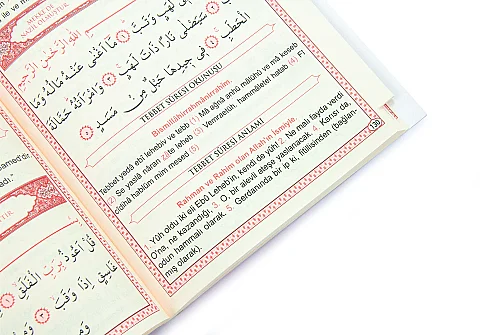 MEKKE'DE
NAZİL OLMUŞTUR.
بِسْمِ اللّٰهِ الرَّحْمٰنِ الرَّحِيمِ
لَهَبٍ وَتَبَّ ﴿١﴾ مَا أَغْنٰى عَنْهُ مَالُهُ وَمَا
سَيَصْلٰى نَارًا ذَاتَ لَهَبٍ ﴿٣﴾ وَامْرَأَتُهُ حَمَّالَةَ
الْحَطَبِ ﴿٤﴾ فِي جِيدِهَا حَبْلٌ مِنْ مَسَدٍ ﴿٥﴾
TEBBET SÛRESİ OKUNUŞU
Bismillâhirrahmânirrahîm.
Tebbet yedâ ebî lehebiv ve tebb (1) Mâ ağnâ anhü mâlühû ve mâ keseb
(2) Se yaslâ nâran zâte leheb (3) Vemraetüh, hammâletel hatab (4) Fî
cîdihâ hablüm mim mesed (5)
TEBBET SÛRESİ ANLAMI
Rahman ve Rahim olan Allah'ın ismiyle.
1. Yuh oldu iki eli Ebû Leheb'in, kendi de yuh! 2. Ne malı fayda verdi
O'na, ne kazandığı. 3. O, bir alevli ateşe yaslanacak. 4. Karısı da,
odun hammalı olarak. 5. Gerdanında bir ip ki, fitilisinden (bağlan-
mış olarak).
قُلْ أَعُوذُ بِرَبِّ الْفَلَقِ
غَاسِقٍ إِذَا وَقَبَ